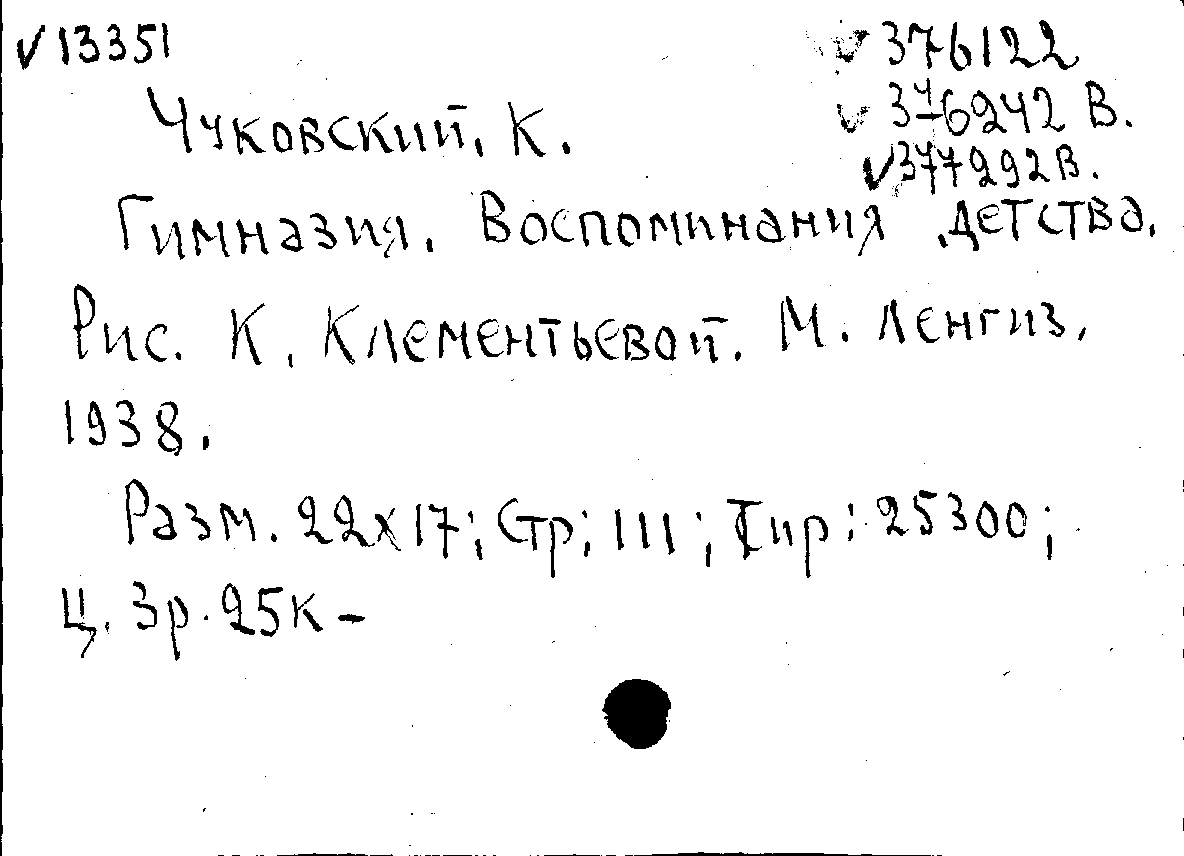 √13351
√ 376122
√ 376242 В.
√377292В.
Чуковский, К.
Гимназия. Воспоминания детства.
Рис. К. Клементьевой. М. Ленгиз,
1938.
Разм. 22х17; Стр; 111; Тир: 25300;
Ц. 3р. 25к -